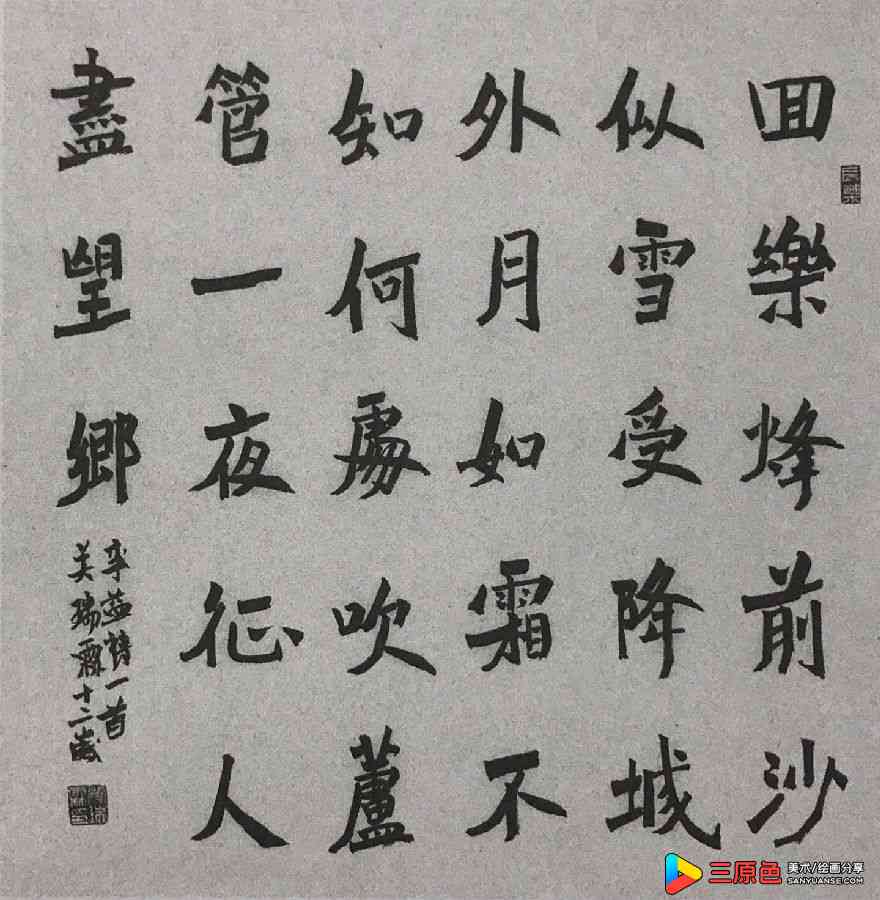 回樂烽前沙
似雪受降城
外月如霜不
知何處吹蘆
管一夜征人
盡望鄉
李益詩一首
美瑞霖十二歲
三原色
美术/绘画分享
SANYUANSE.COM